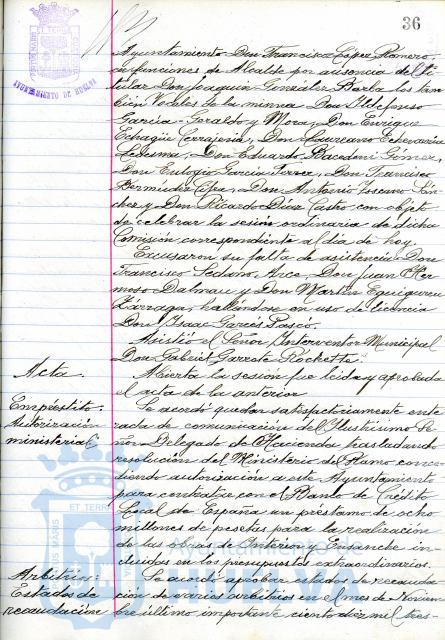 36
Ayuntamiento Don Francisco López Romero,
en funciones de Alcalde por ausencia del ti-
tular Don Joaquín González Barba los tam-
bién Vocales de la misma Don Ildefonso
García-Geraldo y Mora, Don Enrique
Echagüe Cerrajería, Don Laureano Echevarría
Ledesma, Don Eduardo Bacedoni Gómez,
Don Eulogio García Ferrer, Don Francisco
Bermúdez Cifre, Don Antonio Toscano Sán-
chez y Don Ricardo Díaz Castro con objeto
de celebrar la sesión ordinaria de dicha
Comisión correspondiente al día de hoy.
Excusaron su falta de asistencia Don
Francisco Sedano Arce, Don Juan Her-
moso Dalmau y Don Martín Eguiguren
Zarraga, hallándose en uso de licencia
Don Isaac Garcés Pascó.
Asistió el Señor Interventor Municipal
Don Gabriel Garrote Rochette.
Acta.
Abierta la sesión fue leída y aprobada
el acta de la anterior
Empréstito:
Autorización
ministerial
Se acordó quedar satisfactoriamente ente-
rada de comunicación del Ilustrísimo Se-
ñor Delegado de Hacienda trasladando
resolución del Ministerio del Ramo conce-
diendo autorización a este Ayuntamiento
para contratar con el Banco de Crédito
Local de España un préstamo de ocho
millones de pesetas para la realización
de las obras de Interior y Ensanche in-
cluidas en los presupuestos extraordinarios.
Arbitrios:
Estados de
recaudación
Se acordó aprobar estados de recauda-
ción de varios arbitrios en el mes de Noviem-
bre último importante ciento diez mil tres-